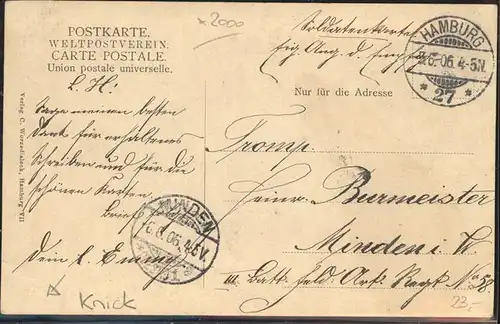 x 2000
POSTKARTE.
WELTPOSTVEREIN.
CARTE POSTALE.
Union postale universelle.
Soldatenkarte
Eig. Ang. d. Empf.
HAMBURG
5.6.06. 4-5N.
* 27 *
Nur für die Adresse
L. H!
Sage meinen besten
Dank für erhaltenes
Schreiben und für die
schönen Karten.
Brief
Dein l. Emmy
MINDEN
6.6.06. 4-5V.
Tromp.
Heinr. Burmeister
Minden i. W.
III. Batt. Feld. Art. Regt. No 58.
Verlag C. Worzedialeck, Hamburg VII
Knick
23,-